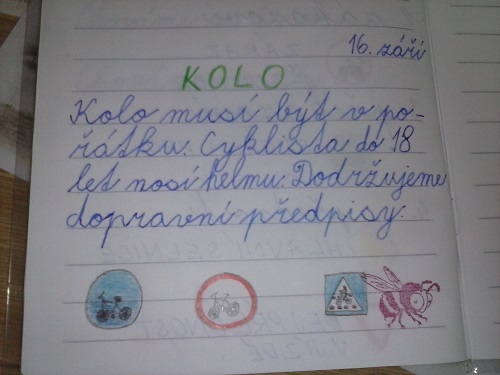 16. září
KOLO
Kolo musí být v po-
řátku. Cyklista do 18
let nosí helmu. Dodržujeme
dopravní předpisy.